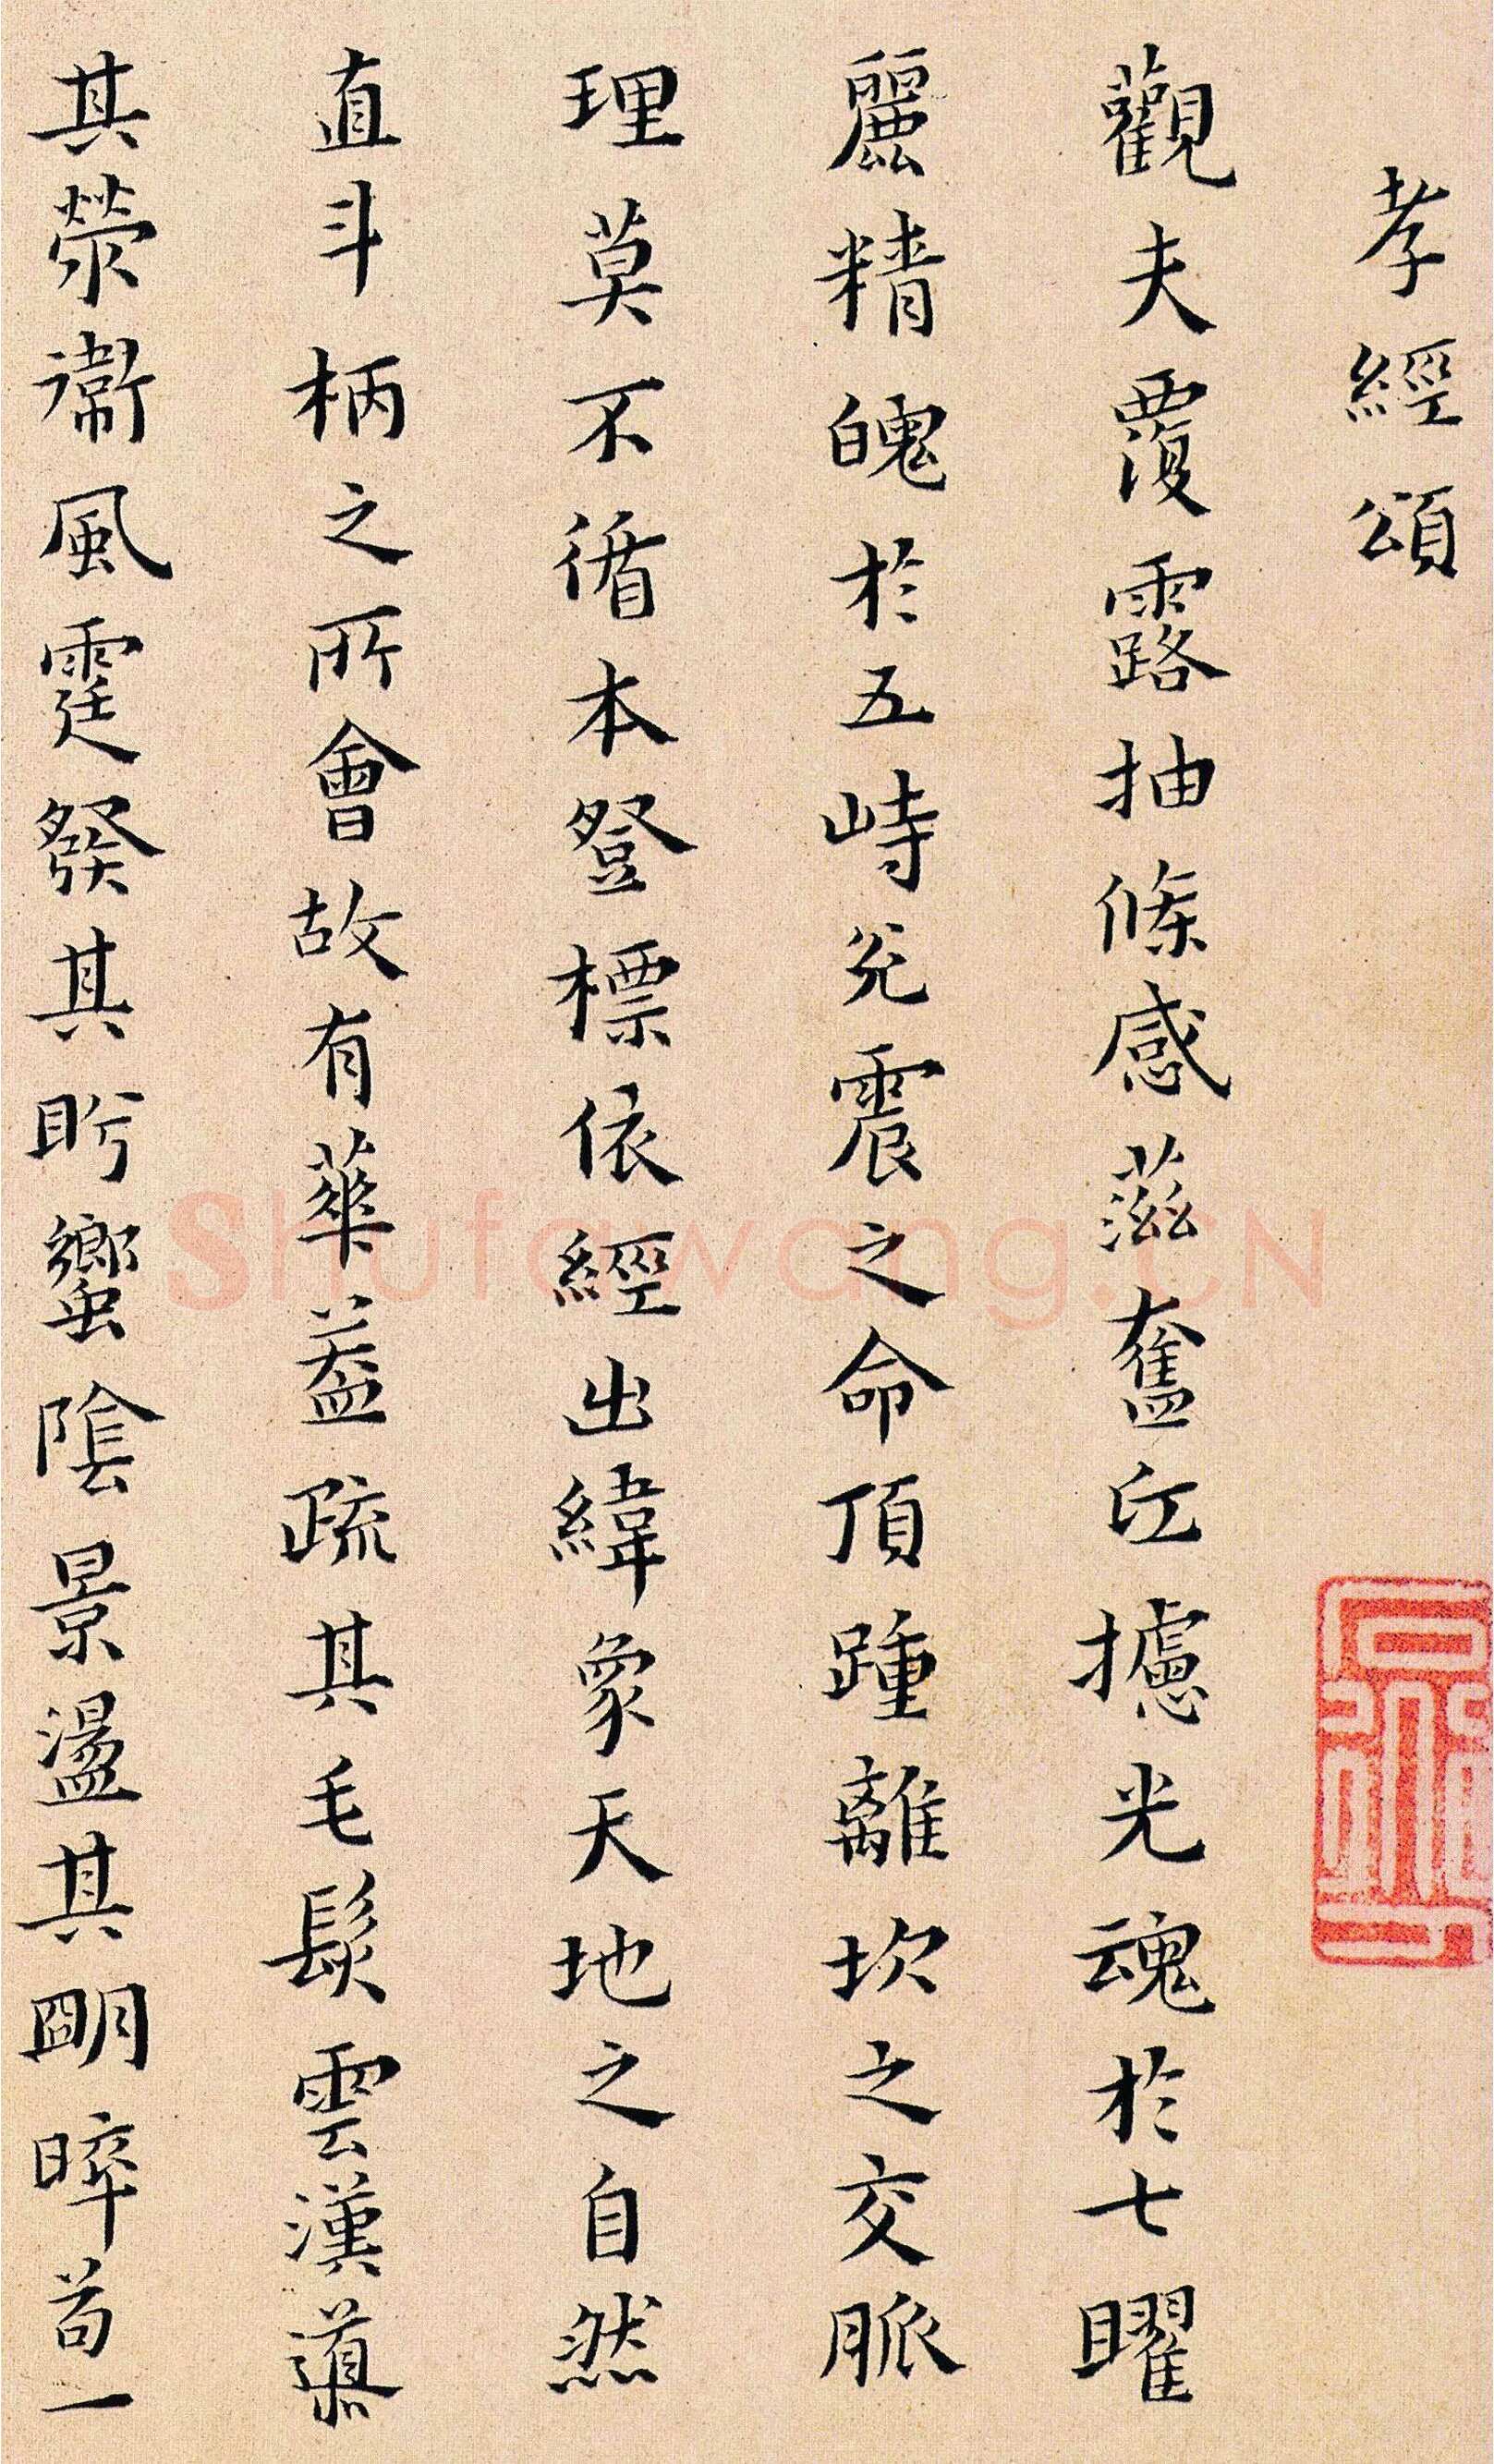 孝經頌
觀夫覆露抽條感滋奮丘攄光魂於七曜
麗精魄於五峙兊震之命頂踵離坎之交脈
理莫不循本登標依經出緯象天地之自然
直斗柄之所會故有華葢疏其毛髮雲漢導
其滎衞風霆發其肸蠁陰景盪其朙晬苟一
Shufawang.CN